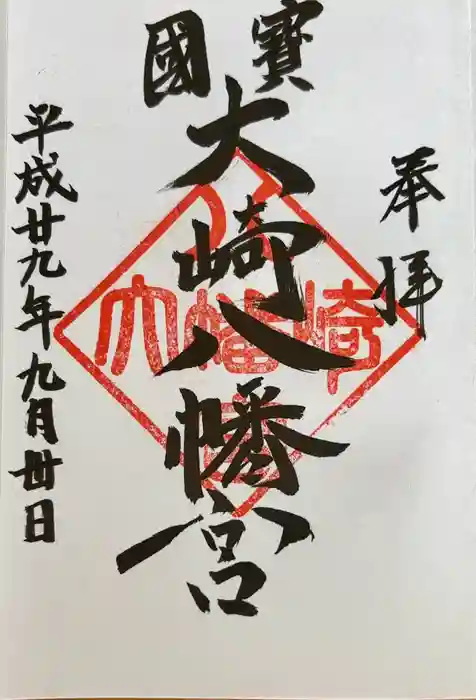 奉拝
國寶
大崎八幡宮
大崎八幡宮
平成廿九年九月丗日